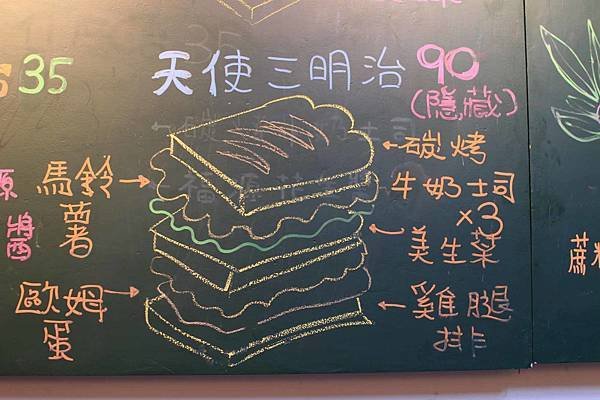 35
天使三明治 90
(隱藏)
馬鈴
薯
歐姆
蛋
碳烤
牛奶土司
×3
美生菜
雞腿
排卡
醬
蔗